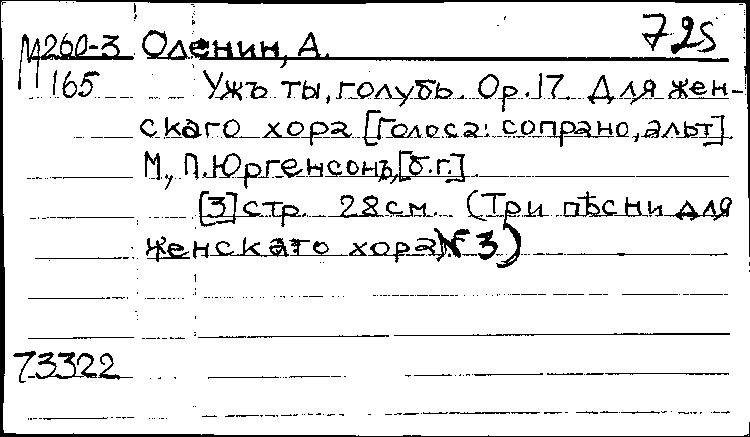 725
М260-3 Оленин, А.
165 Ужъ ты, голубь. Ор.17. Для жен-
скаго хора [Голоса: сопрано, альт]
М., П.Юргенсонъ, [б.г.].
[3] стр. 28см. (Три пѣсни для
женскаго хора №3)
73322